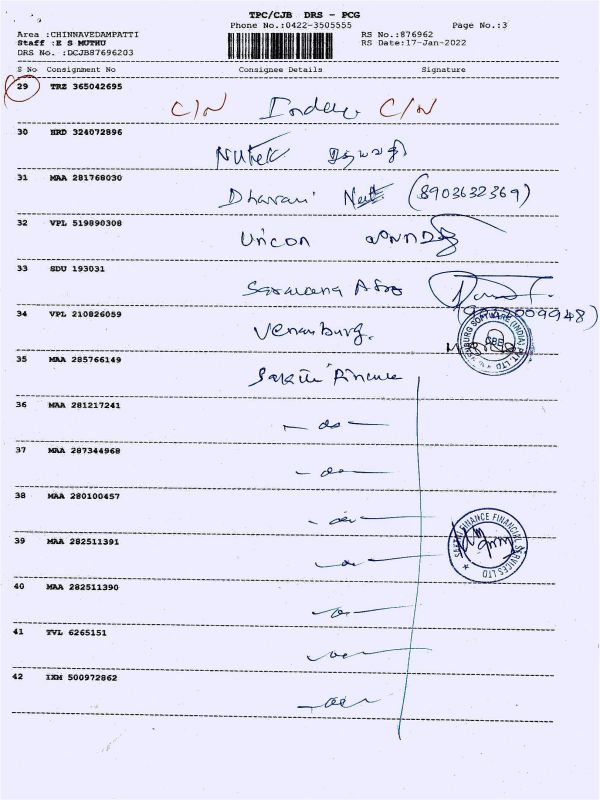 TPC/CJB DRS - PCG
Phone No.:0422-3505555 Page No.:3
Area :CHINNAVEDAMPATTI RS No.:876962
Staff :E S MUTHU RS Date:17-Jan-2022
DRS No. :DCJB87696203
S No Consignment No Consignee Details Signature
29 TRZ 365042695
C/N C/N
30 HRD 324072896
31 MAA 281768030
Dharani (8903632369)
32 VPL 519890308
Uricon
33 SDU 193031
34 VPL 210826059
Venanburg.
35 MAA 285766149
Sakthi Finance
36 MAA 281217241
- do -
37 MAA 287344968
- do -
38 MAA 280100457
- do -
39 MAA 282511391
- do -
SAKTHI FINANCE FINANCIAL SERVICES LTD
40 MAA 282511390
- do -
41 TVL 6265151
- do -
42 IXM 500972862
- do -